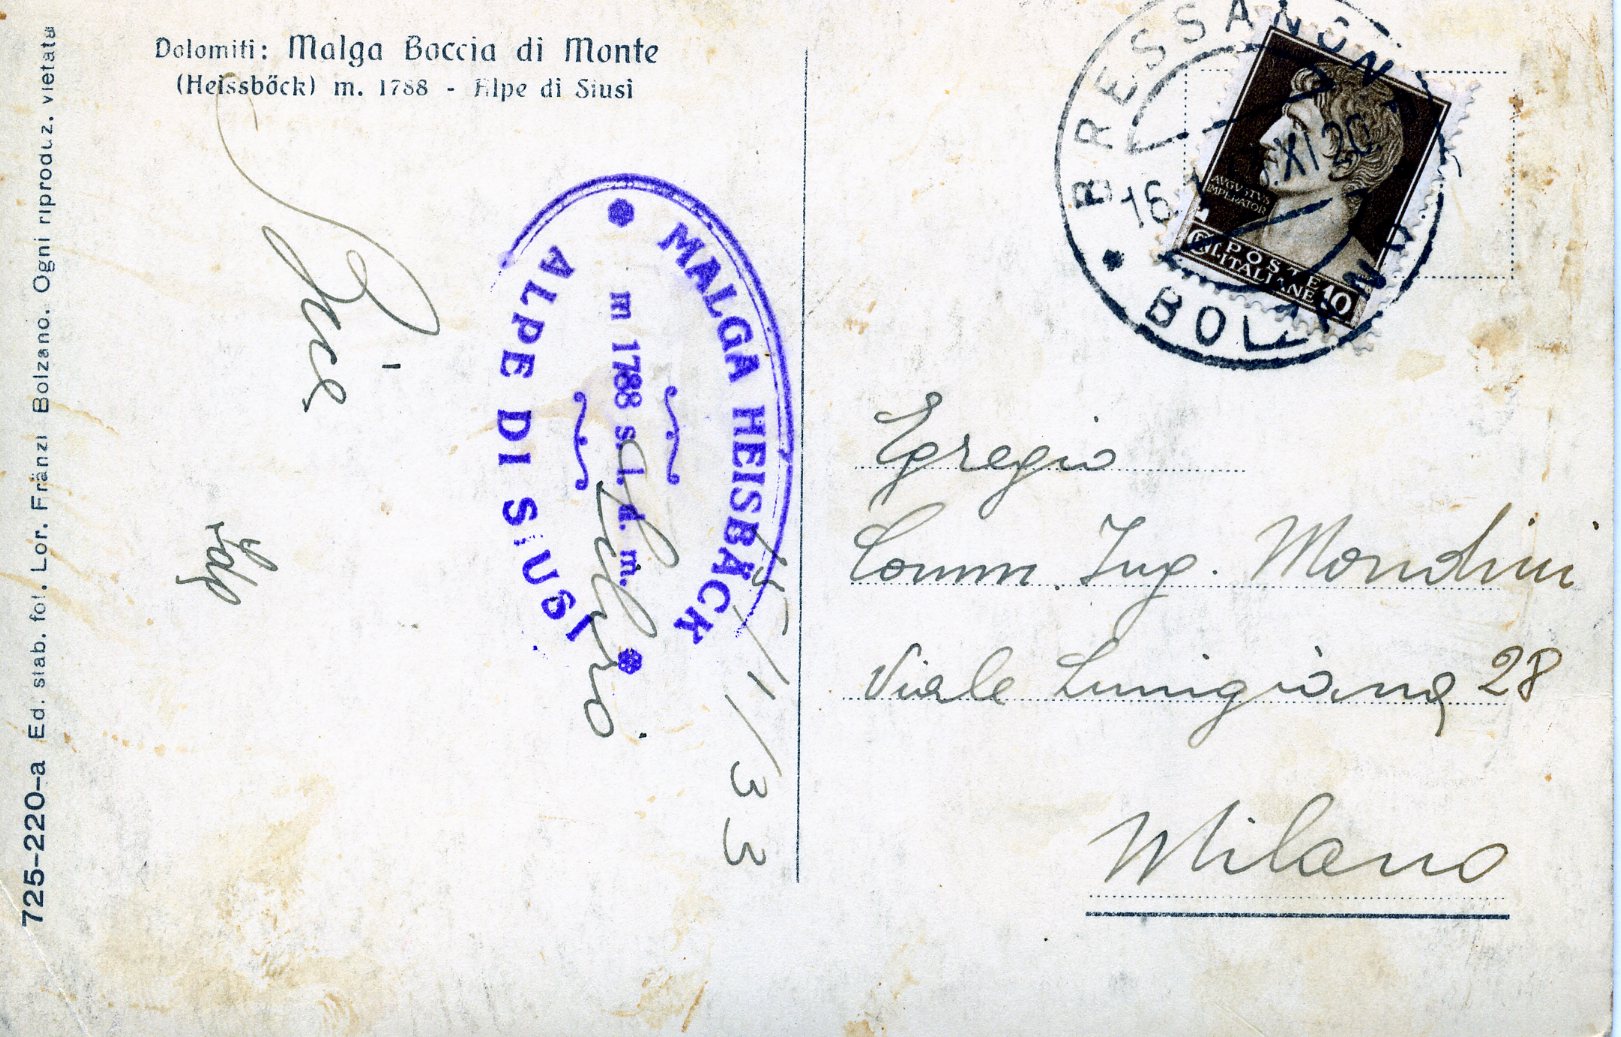 Dolomiti: Malga Boccia di Monte
(Heissböck) m. 1788 - Alpe di Siusi
725-220-a Ed. stab. fot. Lor. Fränzl Bolzano. Ogni riproduz. vietata
MALGA HEISBÄCK
m 1788 s. l. d. m.
ALPE DI SIUSI
15/11/33
BRESSANONE
16. XI 20
BOLZANO
AVGVSTVS
IMPERATOR
POSTE
ITALIANE
10
Egregio
Comm. Ing. Mondini
Viale Lunigiana 28
Milano